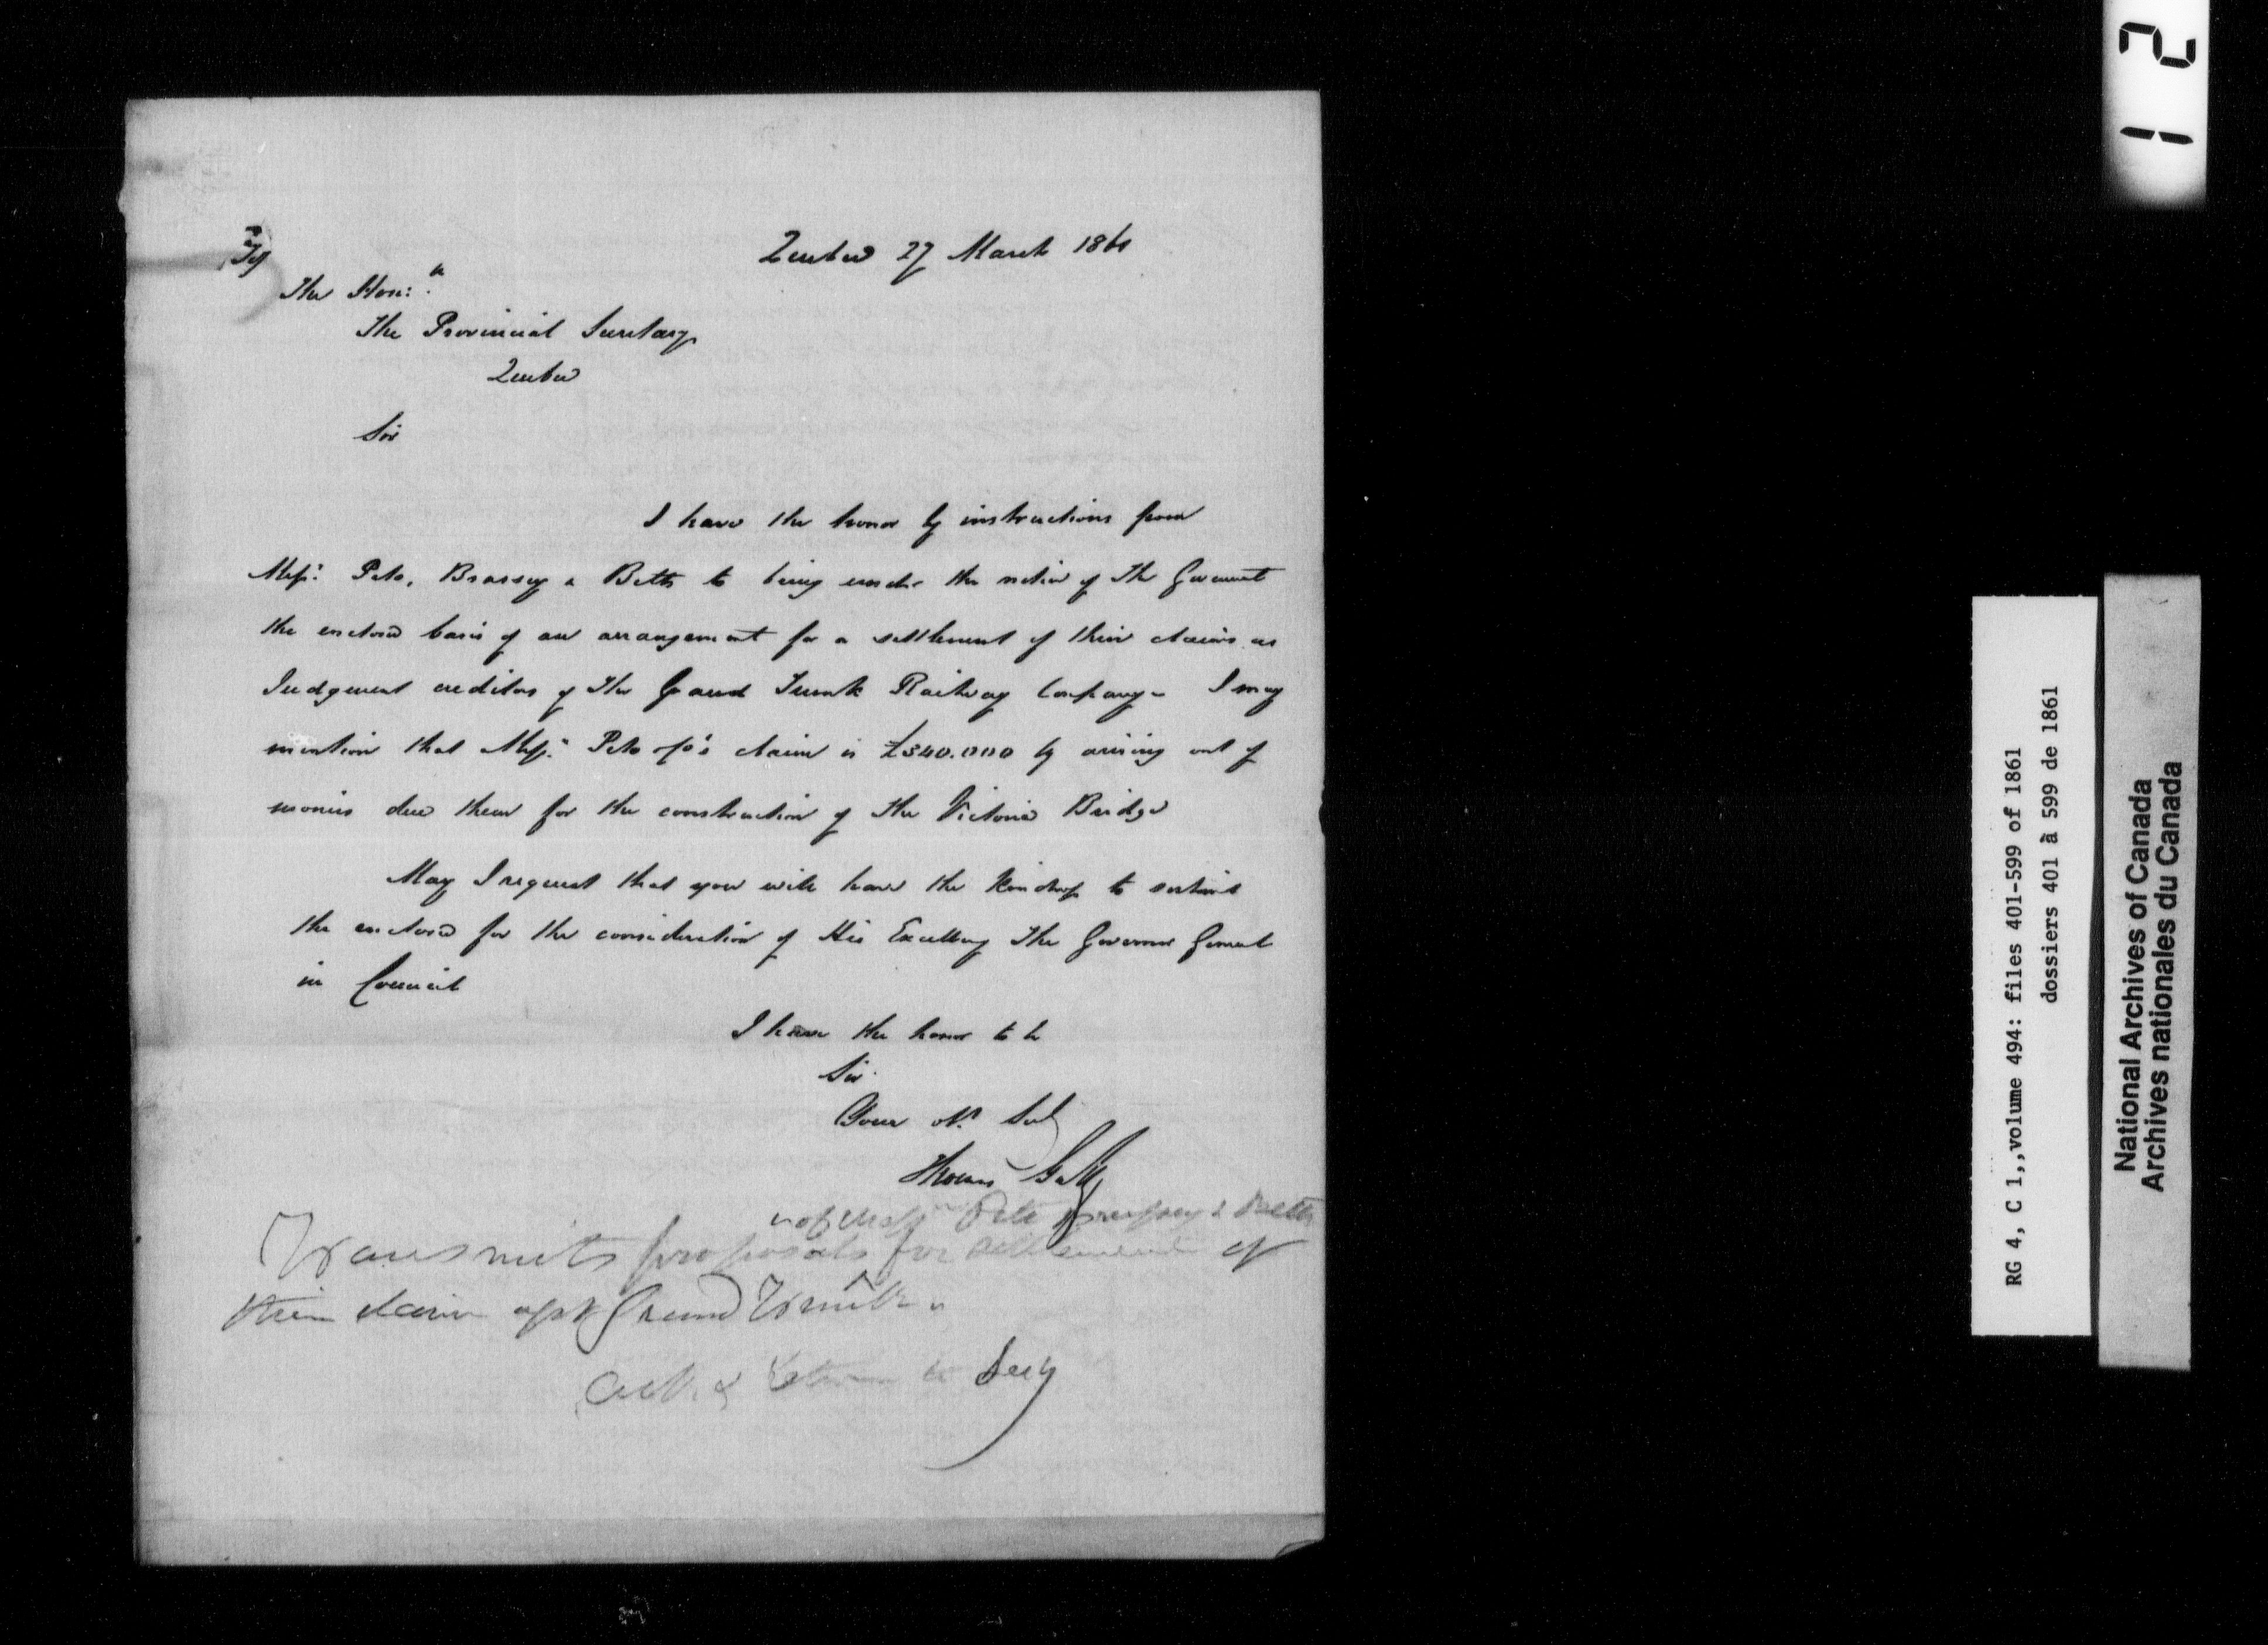 Quebec 27 March 1861
The Hon:
The Provincial Secretary
Quebec
Sir
I have the honor by instructions from
Mess: Peto, Brassey & Betts to bring under the notice of The Government
the enclosed basis of an arrangement for a settlement of their claims as
Judgement creditors of The Grand Trunk Railway Company - I may
mention that Mess: Peto claim is £340.000 arising out of
monies due them for the construction of The Victoria Bridge
May I request that you will have the kindness to submit
the enclosed for the consideration of His Excellency The Governor General
in Council
I have the honor to be
Sir
Your
Thomas
of Mess Peto Brassey & Betts
Transmits proposals for settlement of
their claim agst Grand Trunk
Ack. & Return to Secy
12
RG 4, C 1,,volume 494: files 401-599 of 1861
dossiers 401 à 599 de 1861
National Archives of Canada
Archives nationales du Canada